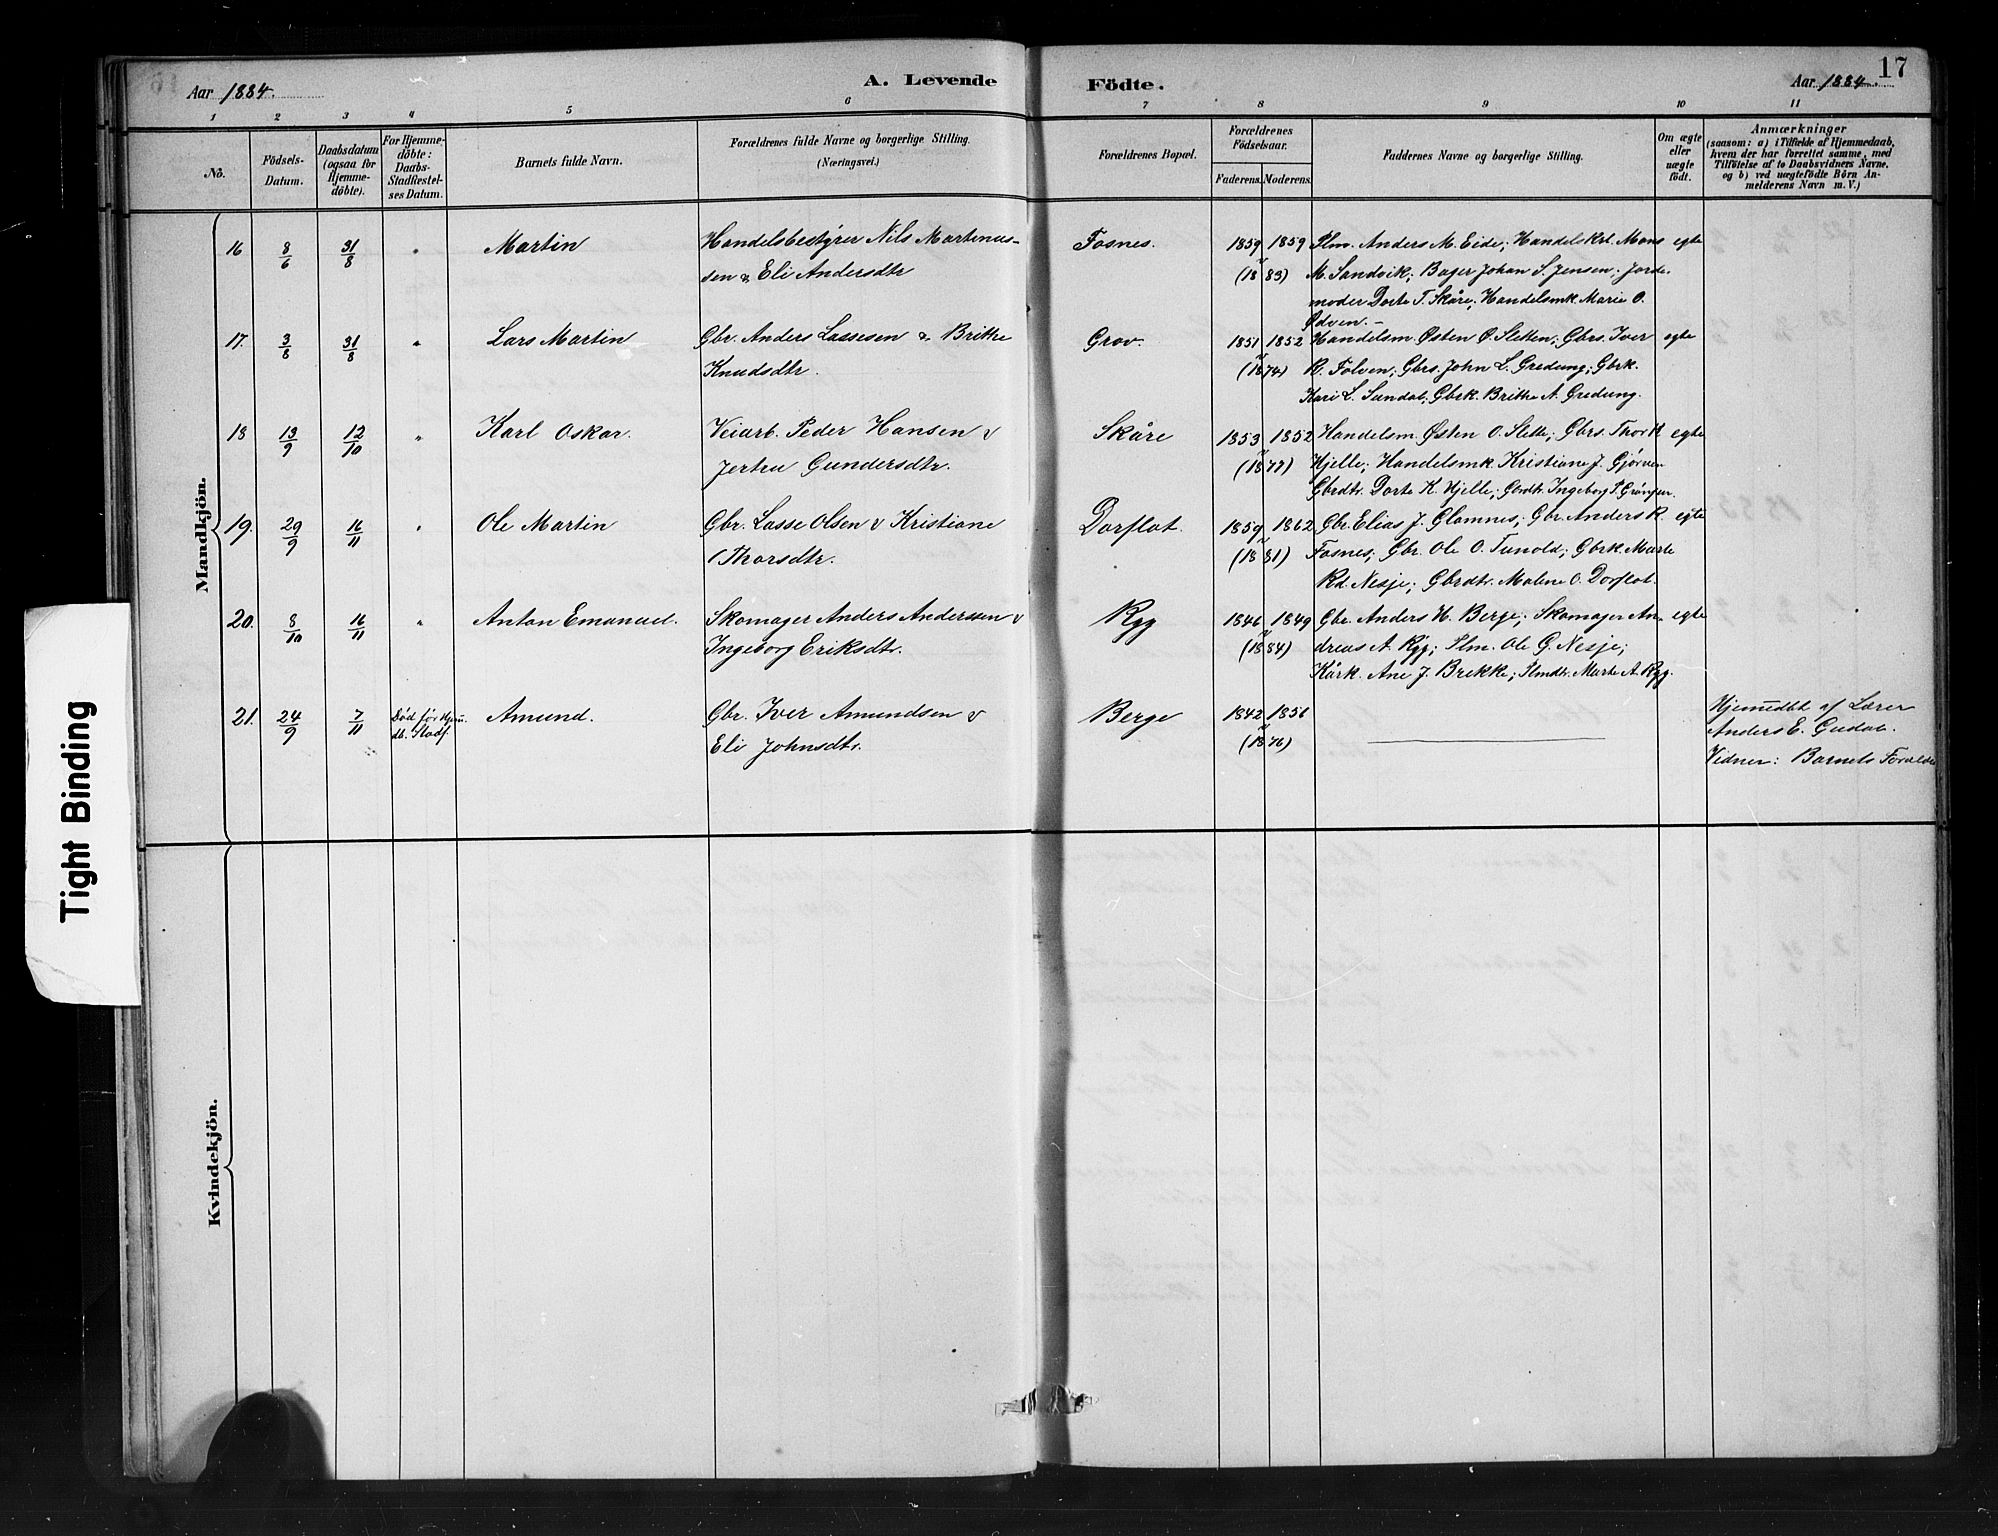 Aar 1884.
A. Levende
Födte.
Aar 1884.
17
1 2 3 4 5 6 7 8 9 10 11
No.
Födsels-
Datum.
Daabsdatum
(ogsaa for
Hjemme-
döbte).
For Hjemme-
döbte:
Daabs-
Stadfæstel-
ses Datum.
Barnets fulde Navn.
Forældrenes fulde Navne og borgerlige Stilling.
(Næringsvei.)
Forældrenes Bopæl.
Forældrenes
Födselsaar.
Faderens. Moderens.
Faddernes Navne og borgerlige Stilling.
Om ægte
eller
uægte
födt.
Anmærkninger
(saasom: a) i Tilfælde af Hjemmedaab,
hvem der har forrettet samme, med
Tilföielse af to Daabsvidners Navne.
og b) ved uægtefödte Börn An-
melderens Navn m. V.)
Mandkjön.
16 8/6 31/8 " Martin
Handelsbestyrer Nils Martinus-
sen & Eli Andersdtr
Fosnes.
1859 1859
(1883)
Plm. Anders M. Eide; Handelskrl. Mons
M. Sandvik; Bager Johan S. Jensen; Jorde-
moder Dorte T. Skåre; Handelsmk Marie O.
Ødven.-
egte
17. 3/8 31/8 " Lars Martin
Gbr. Anders Lassesen & Brithe
Knudsdtr.
Grov.
1851 1852
(1874)
Handelsm. Østen O. Sletten; Gbrs. Iver
R. Folven; Gbrs. John L. Gredung; Gbrk.
Kari L. Sundal; Gbrk. Brithe A. Gredung.
egte
18 13/9 12/10 " Karl Oskar.
Veiarb. Peder Hansen &
Jertru Gundersdtr.
Skåre
1853 1852
(1877)
Handelsm. Østen O. Slette; Gbrs. Thor K
Hjelle; Handelsmk. Kristiane J. Gjørven
Gbrdtr. Dorte K. Hjelle; Gbrdtr. Ingeborg
egte
19. 29/9 16/11 " Ole Martin
Gbr. Lasse Olsen & Kristiane
Thorsdtr.
Dorflot.
1859 1862
(1881)
Gbr. Elias J. Glomnes; Gbr. Anders R.
Fosnes; Gbr. Ole O. Tunold; Gbrk. Marte
Rd. Nesje; Gbrdtr. Malene O. Dorflot.
egte
20. 8/10 16/11 " Anton Emanuel.
Skomager Anders Anderssen &
Ingeborg Eriksdtr.
Rygg
1846 1849
(1884)
Gbr. Anders H. Berge; Skomager An-
dreas A. Rygg; Plm. Ole G. Nesje;
Kårk. Ane J. Brekke; Plmdtr. Marte A. Rygg.
egte
21. 24/9 7/11 Død før Hjem.
db. Stadf.
Amund.
Gbr. Iver Amundsen &
Eli Johnsdtr.
Berge
1842 1856
(1876)
Hjemmedbt af Lærer
Anders E. Gudal.
Vidner: Barnets Forælde
Kvindekjön.
Tight Binding